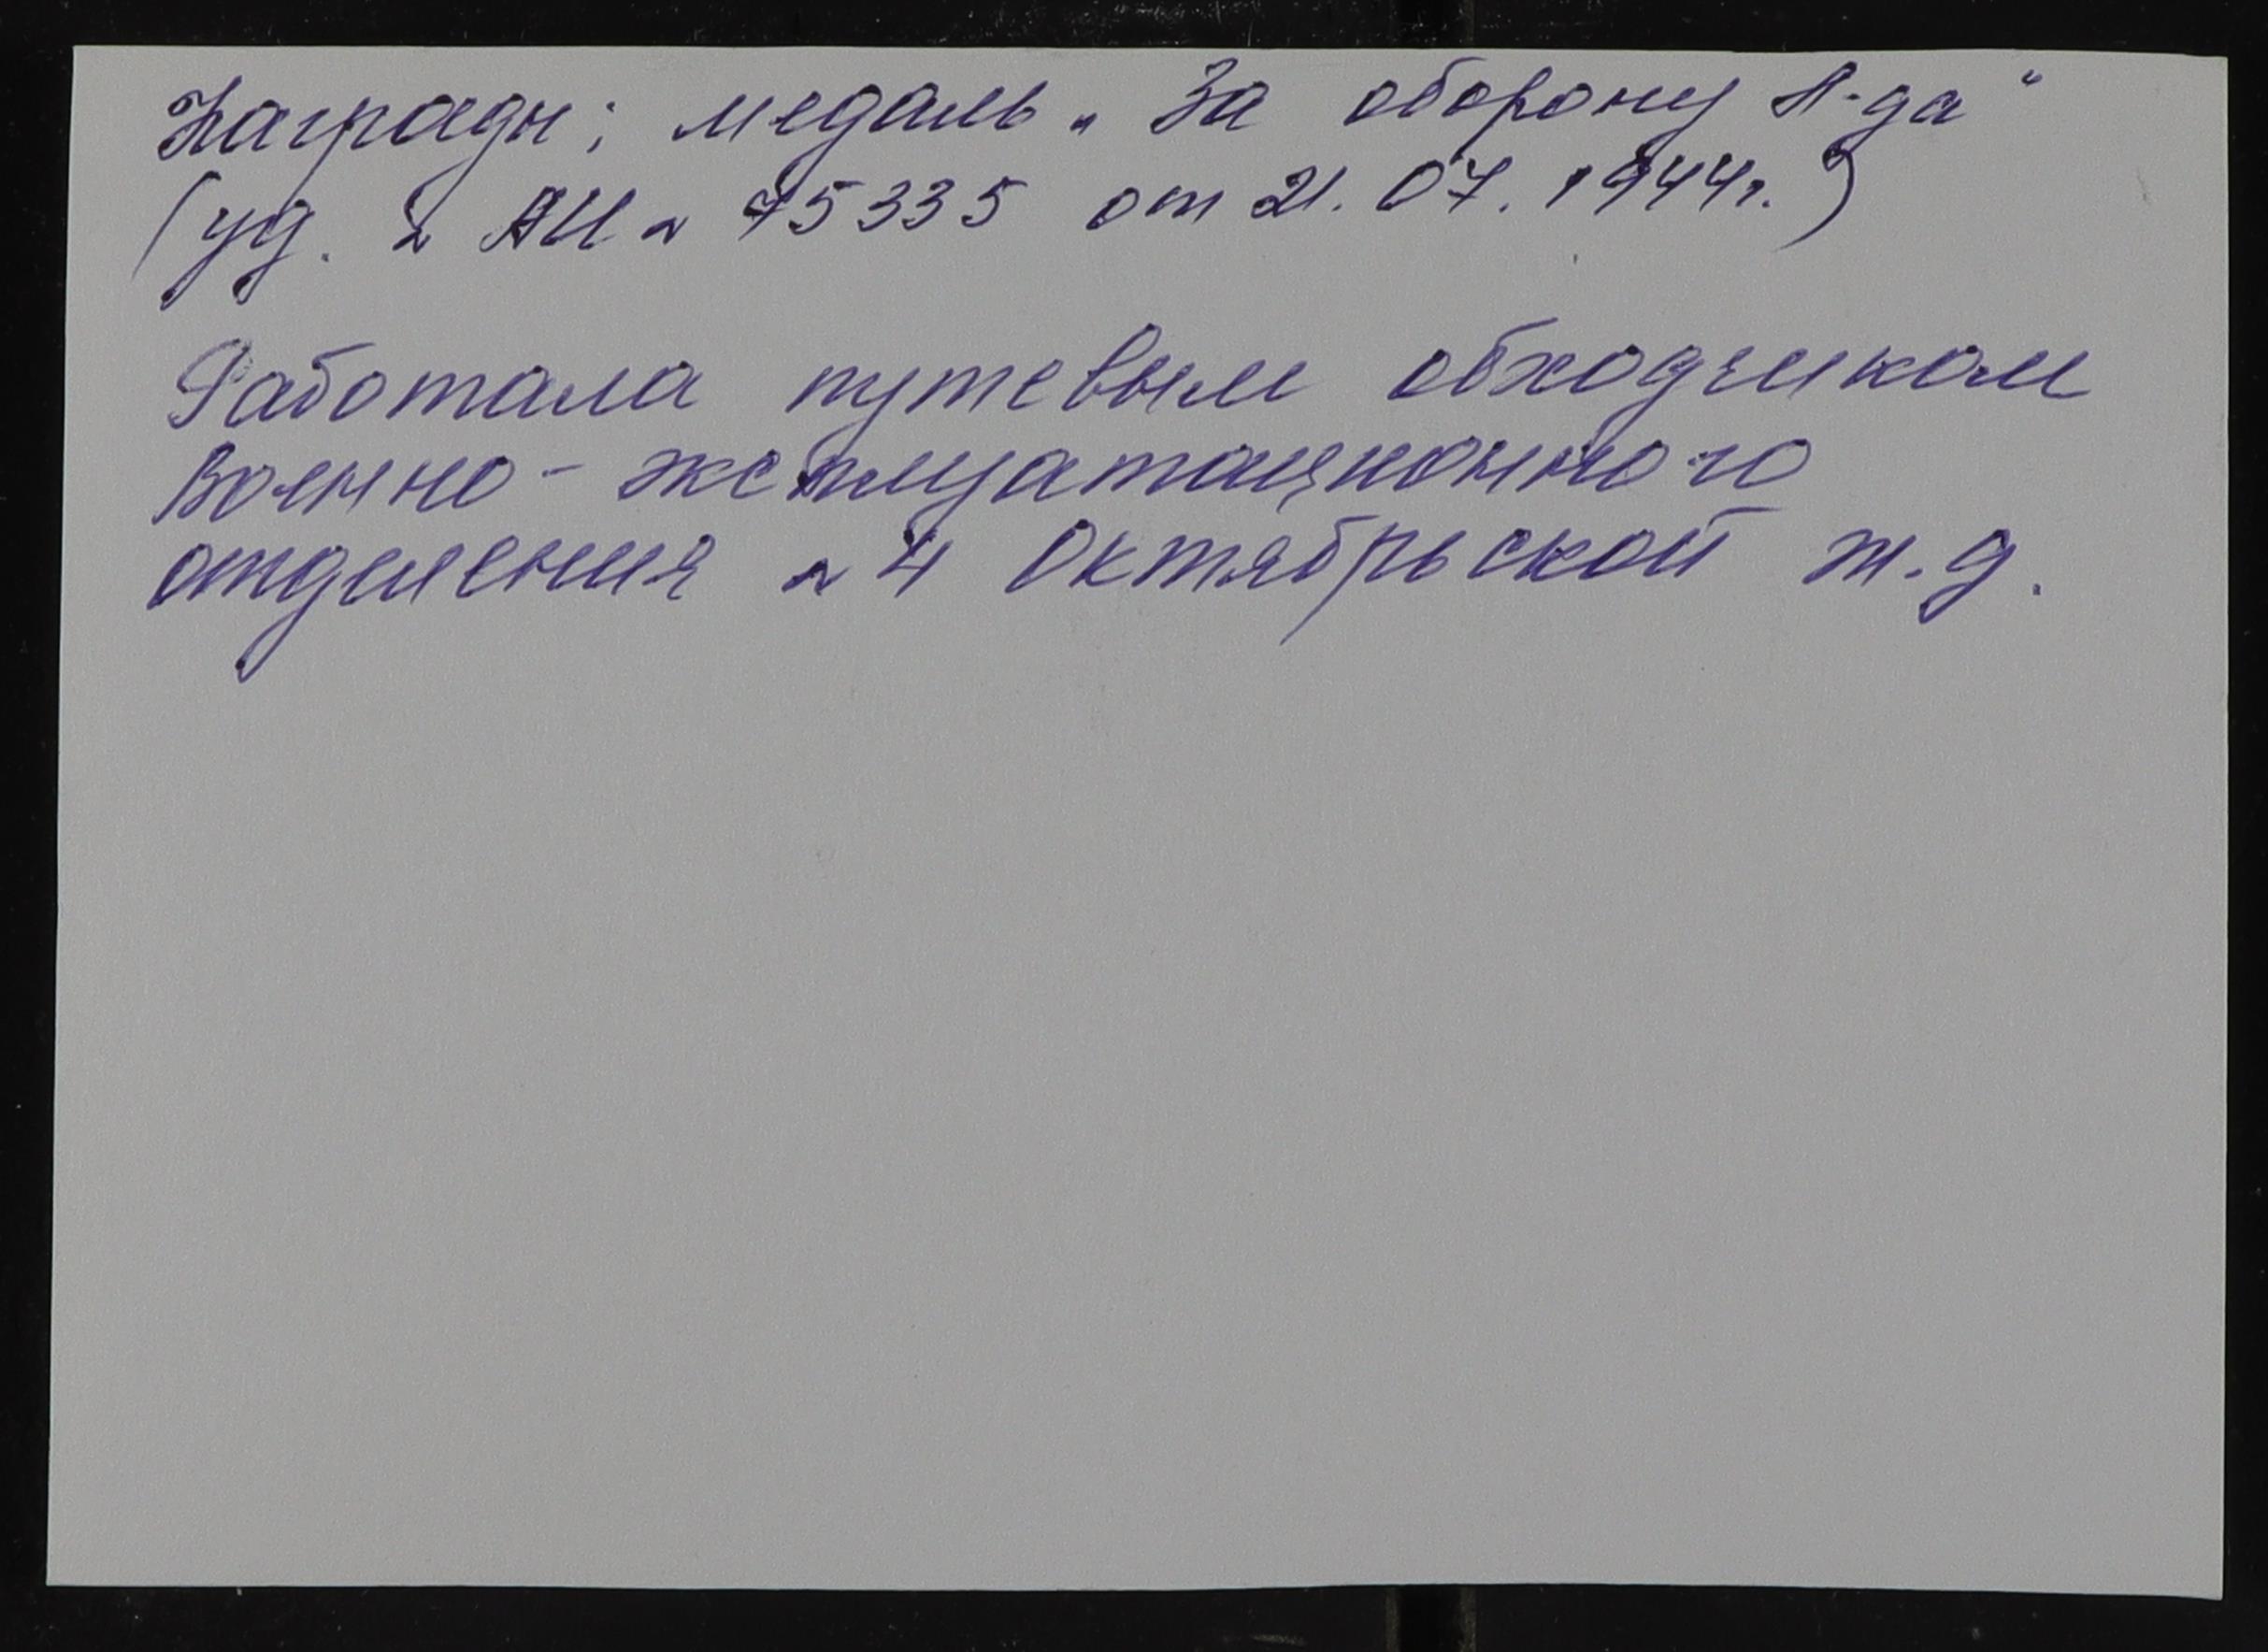 Награды: медаль „За оборону Л-да“
(уд. № АИ № 75335 от 21.07.1944г.)
Работала путевым обходчиком
Военно-эксплуатационного
отделения № 4 Октябрьской ж.д.